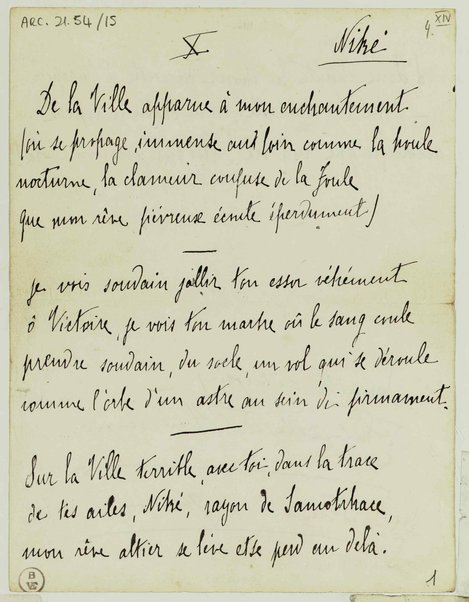 ARC. 21.54/15
XIV
4.
X
Niké
De la Ville apparue à mon enchantement
(où se propage, immense au loin comme la houle
nocturne, la clameur confuse de la Foule
que mon rêve fiévreux écoute éperdument)
je vois soudain jaillir ton essor véhément
ô Victoire, je vois ton marbre où le sang coule
prendre soudain, du socle, un vol qui se déroule
comme l'orbe d'un astre au sein du firmament.
Sur la Ville terrible, avec toi, dans la trace
de tes ailes, Niké, rayon de Samothrace,
mon rêve altier se lève et se perd au delà.
1